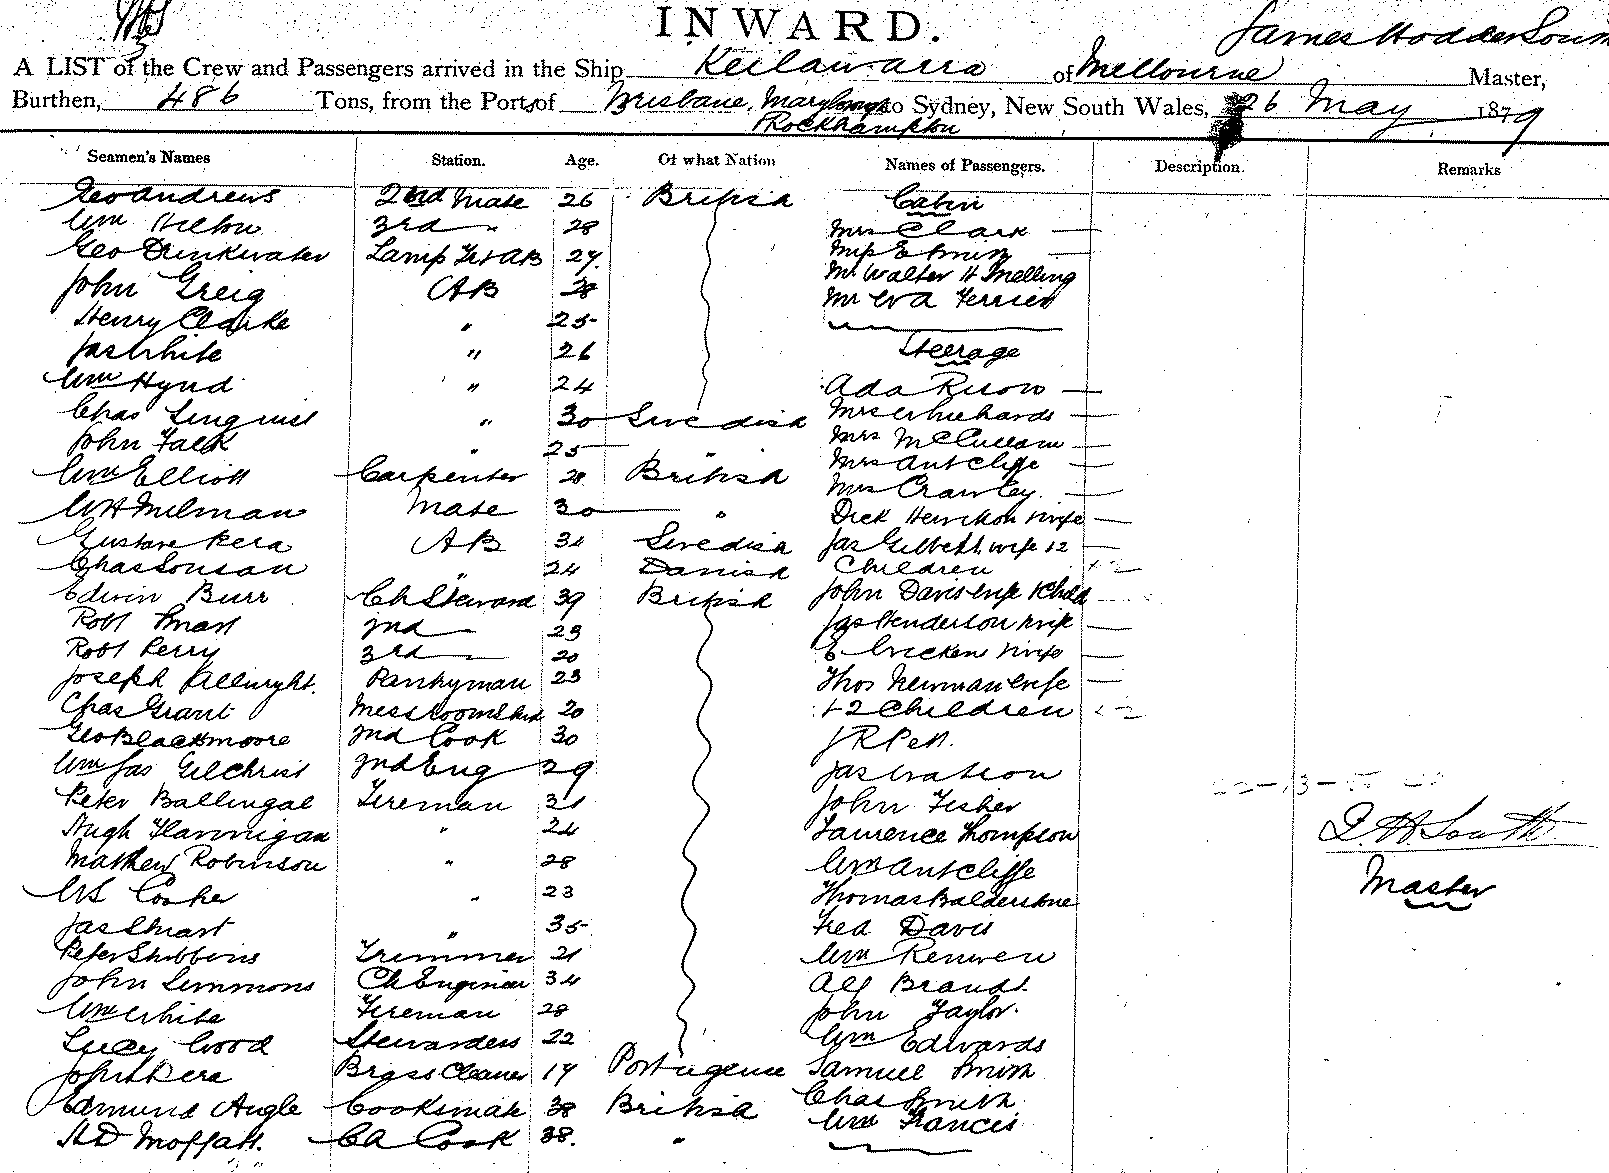 INWARD.
James Hodder South
A LIST of the Crew and Passengers arrived in the Ship Keilawarra of Melbourne Master,
Burthen, 486 Tons, from the Ports of Brisbane, Maryborough to Sydney, New South Wales, 26 May 1879
Rockhampton
Seamen's Names Station. Age. Of what Nation Names of Passengers. Description. Remarks
Geo Andrews 2nd Mate 26 British Cabin
Wm Hilton 3rd " 28 Mrs Clark
Geo Drinkwater Lamp AB 27 Miss E Smith
John Greig AB 28 Mr Walter H Snelling
Henry Clarke " 25 Mr W A Ferrier
Jas White " 26 Steerage
Wm Hynd " 24 Ada
Chas " 30 Swedish Mrs
John Falk " 25 " Mrs McCullam
Wm Elliott Carpenter 28 British Mrs Antcliffe
Mrs Crawley
W H Milman Mate 30 " Dick wife
Gustave Pera AB 31 Swedish Jas Gilbett wife + 2
Chas " 24 Danish Children
Edwin Burr Ch Steward 39 British John Davis wife + Child
Robt Smart 2nd 23 Jas Henderson + wife
Robt Perry 3rd 20 E + wife
Joseph Pantryman 23 Thos Newman wife
Chas Grant Messroom 20 + 2 Children
Geo Blackmoore 2nd Cook 30 J R Pett.
Wm Jas Gilchrist 2nd Eng 29 Jas
Peter Ballingal Fireman 31 John Fisher
Hugh Flannigan " 24 Laurence Thompson
Mathew Robinson " 28 Wm Antcliffe
W S Cooke " 23 Thomas Balderstone
Jas Stuart " 35 Fred Davis
Peter Stubbins Trimmer 21 Wm Renwen
John Simmons Ch Engineer 34 Alf Brandt
Wm White Fireman 28 John Taylor.
Lucy Wood Stewardess 22 Wm Edwards
John Pera Brass Cleaner 17 Portugense Samuel Smith
Edmund Angle Cooksmate 38 British Chas Smith
H D Moffatt. Ch Cook 38. " Wm Francis
J. H. South
Master